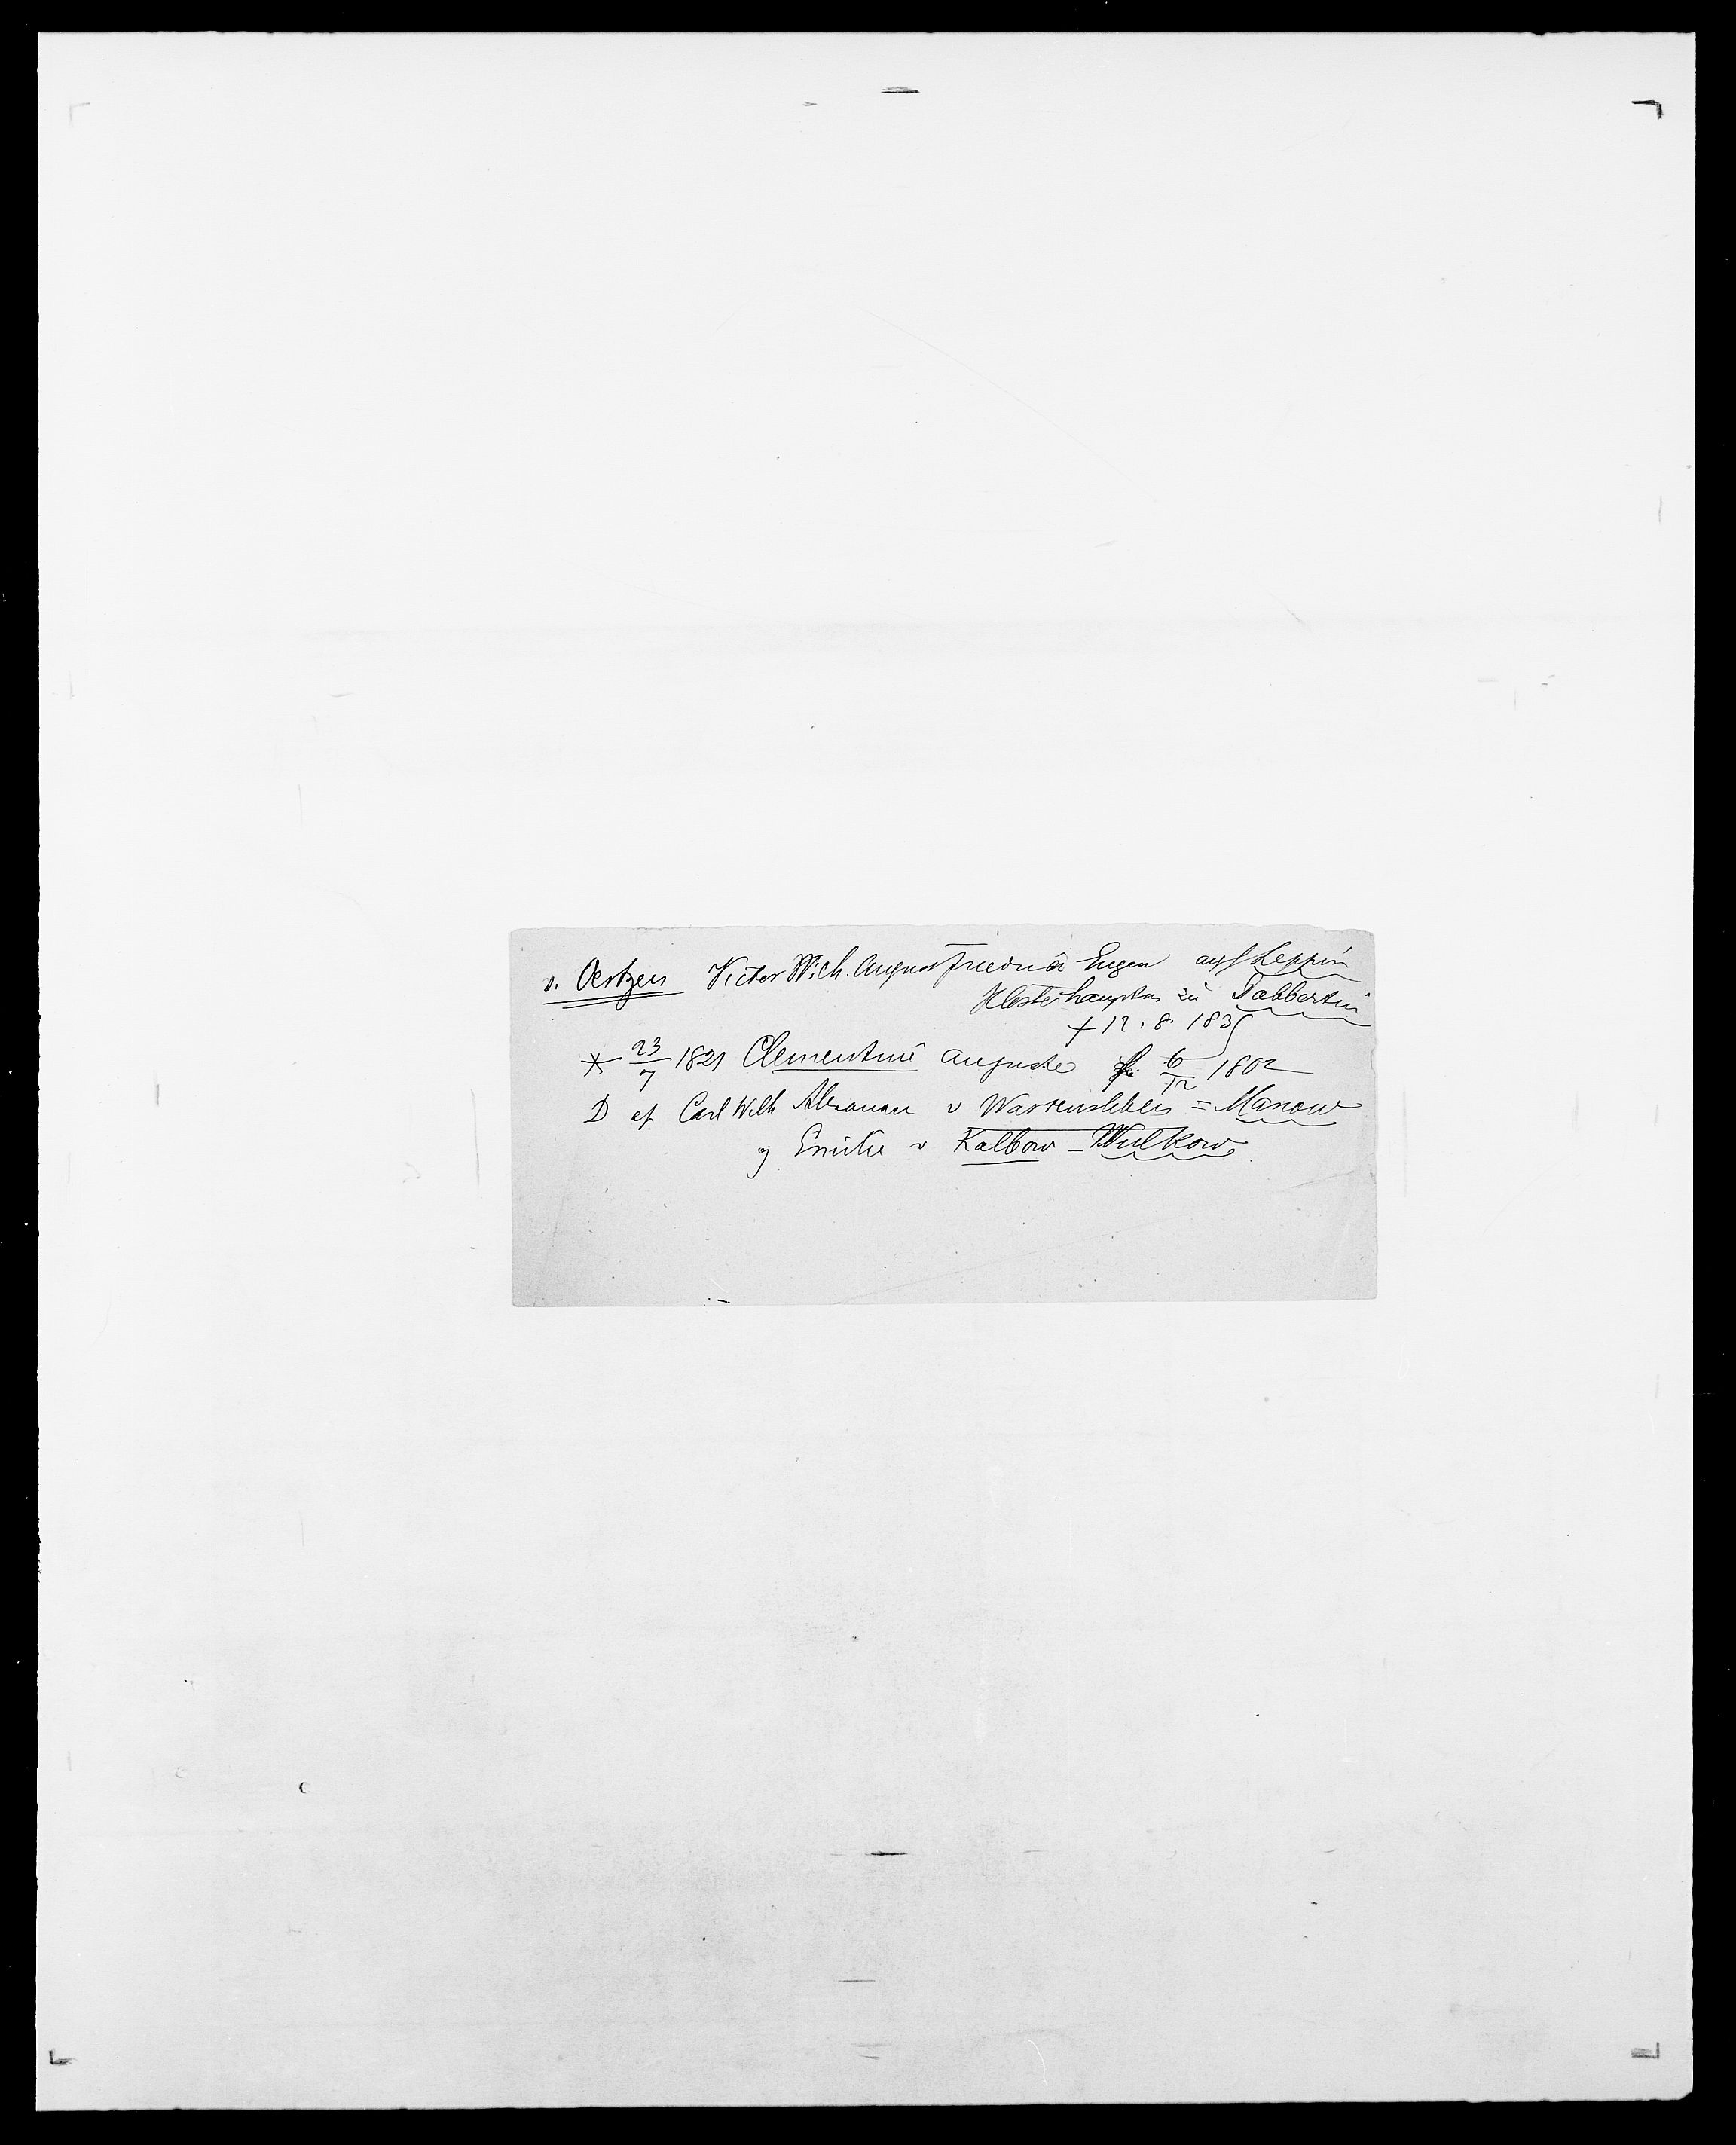 v. Oertzen Victor Wilh. August Friedrich Eugen auf Leppin
Klosterhauptm zu Dobbertin
+ 12. 8. 1835
* 23/7 1821 Clementine Auguste 6/12 1802
D af Carl Wilh Alexander v Wartensleben = Manow
og Emilie v Kalbow - Wulkow